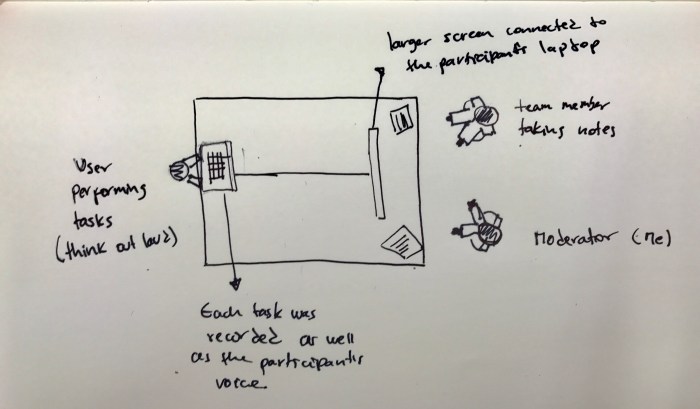 larger screen connected to
the participant's laptop
team member
taking notes
User
performing
tasks
(think out loud)
Moderator (me)
Each task was
recorded as well
as the participant's
voice